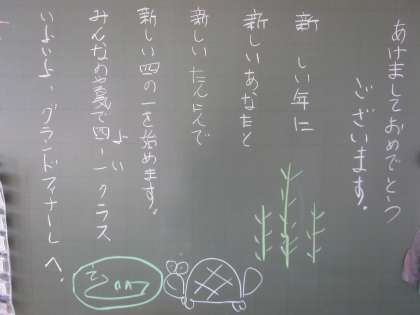 あけましておめでとう
ございます。
新しい年に
新しいあなたと
新しいたんにんで
新しい四の一を始めます。
みんなのやる気で四・一クラス
よい
いよいよ、グランドフィナーレへ。